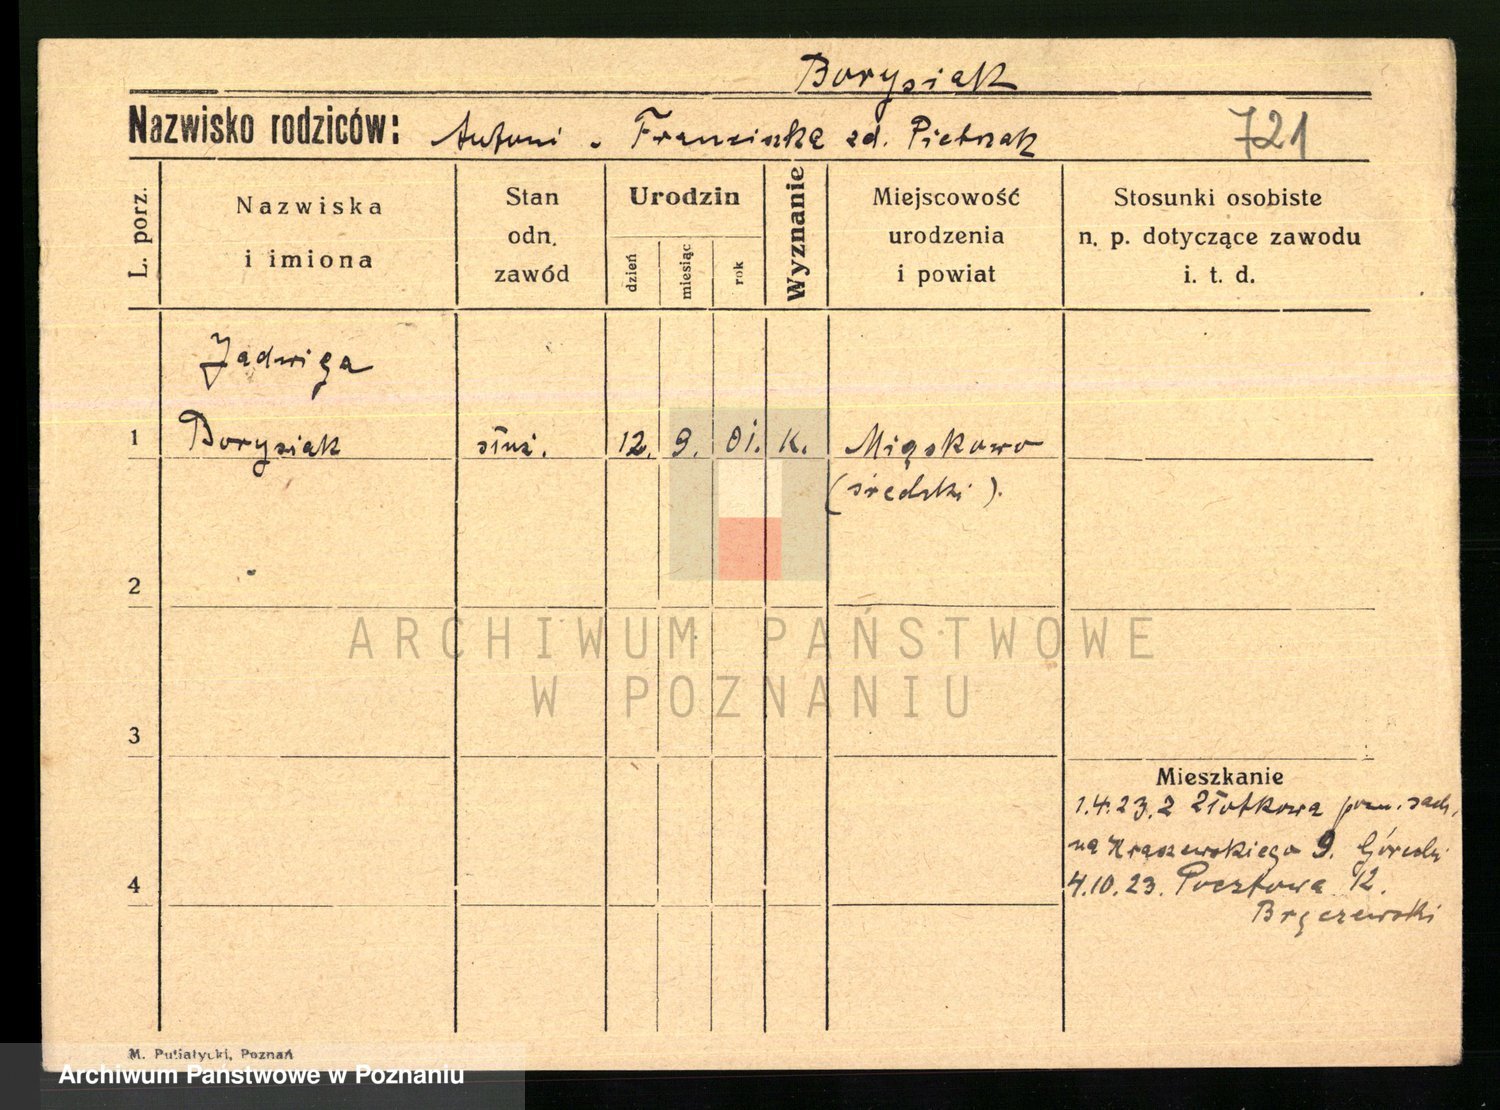 Borysiak
Nazwisko rodziców: Antoni . Franciszka zd. Pietrzak 721
L. porz.
Nazwiska i imiona
Stan odn. zawód
Urodzin
dzień
miesiąc
rok
Wyznanie
Miejscowość urodzenia i powiat
Stosunki osobiste n. p. dotyczące zawodu i. t. d.
Jadwiga
1 Borysiak służ. 12. 9. 01. K. Miąskowo
(średzki).
2
ARCHIWUM PAŃSTWOWE
W POZNANIU
3
Mieszkanie
1.4.23. z Złotkowa pozn.
na Kraszewskiego 9. Górecki
4
4.10.23. Pocztowa 12.
M. Putiatycki, Poznań
Archiwum Państwowe w Poznaniu